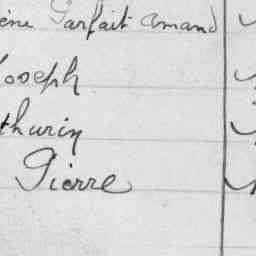 ène Parfait Amand
Joseph
thurin
Pierre